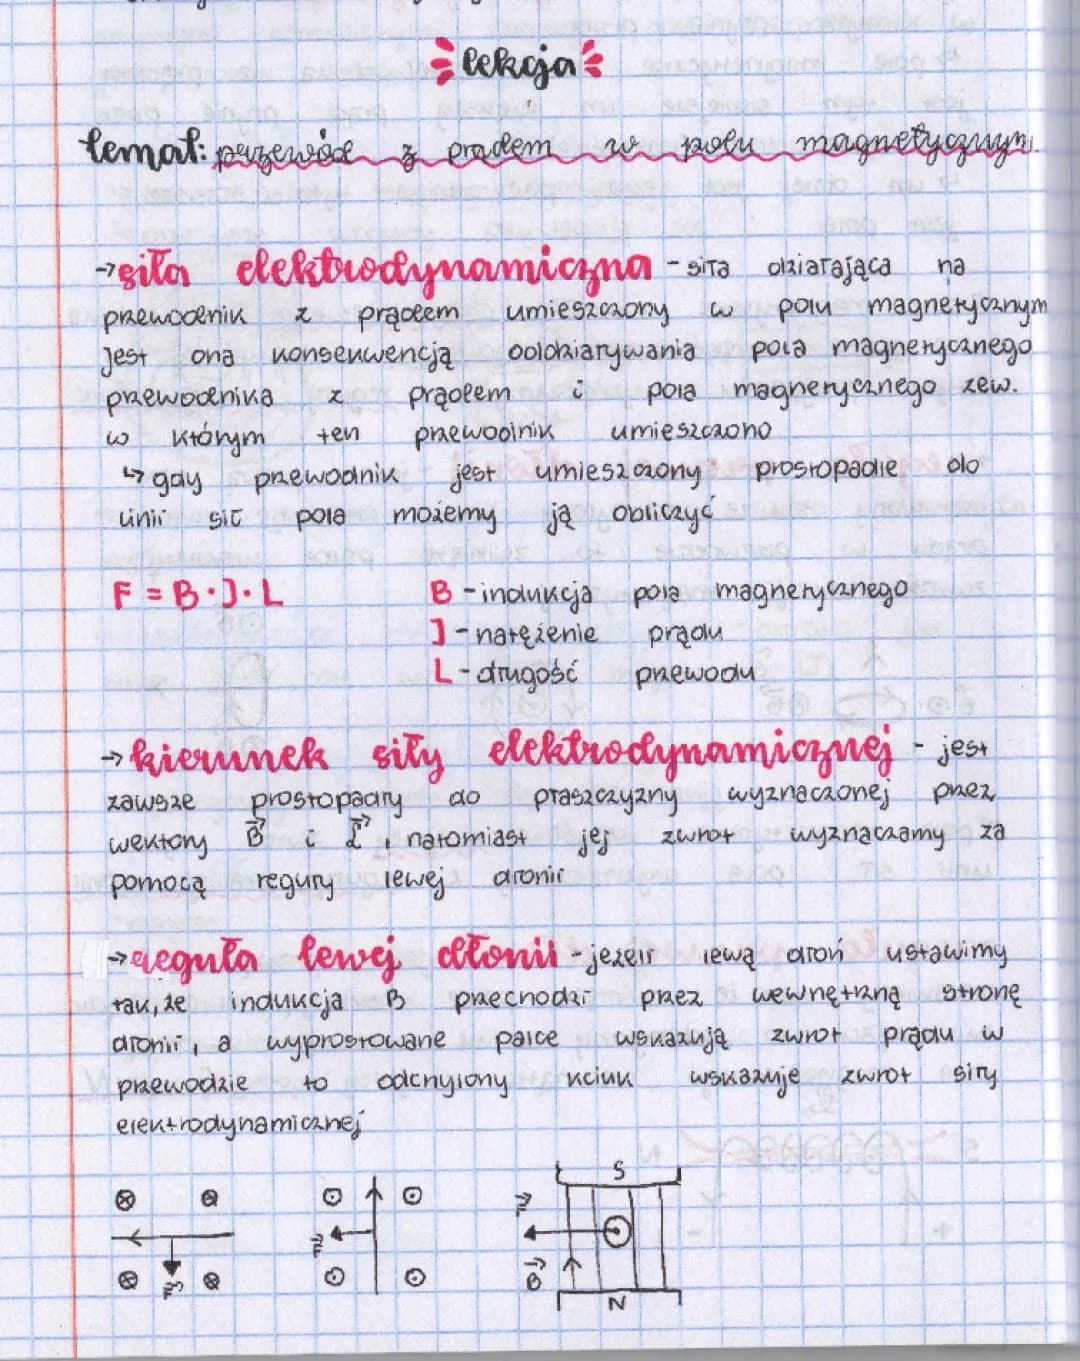 lekcja
temat: przewód z prądem w polu magnetycznym.
→siła elektrodynamiczna - siła działająca na
przewodnik z prądem umieszczony w polu magnetycznym
Jest ona konsekwencją oddziaływania pola magnetycznego
przewodnika z prądem i pola magnetycznego zew.
w którym ten przewodnik umieszczono
↳ gdy przewodnik jest umieszczony prostopadle do
linii sił pola możemy ją obliczyć
F = B · J · L B - indukcja pola magnetycznego
J - natężenie prądu
L - długość przewodu
→ kierunek siły elektrodynamicznej - jest
zawsze prostopadły do płaszczyzny wyznaczonej przez
wektory B⃗ i L⃗, natomiast jej zwrot wyznaczamy za
pomocą reguły lewej dłonii
→reguła lewej dłonii - jeżeli lewą dłoń ustawimy
tak, że indukcja B przechodzi przez wewnętrzną stronę
dłonii, a wyprostowane palce wskazują zwrot prądu w
przewodzie to odchylony kciuk wskazuje zwrot siły
elektrodynamicznej
S
F⃗
F⃗
F⃗
B⃗
N